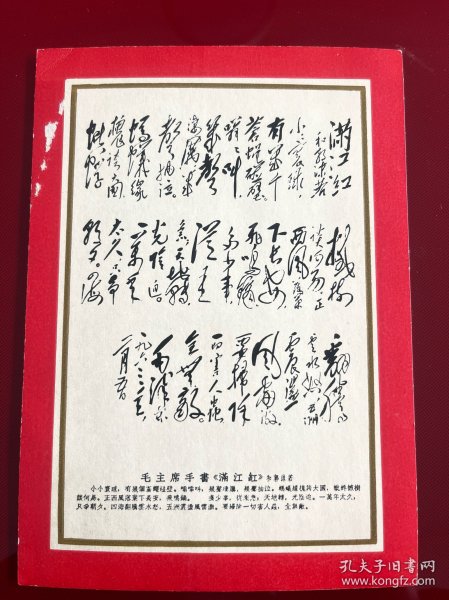 滿江红
和郭沫若
小小寰球，
有几个
苍蝇碰壁。
嗡嗡叫，
几声
凄厉，几
声抽泣。
蚂蚁缘
槐夸大国，
蚍蜉
撼树
谈何易。正
西风落叶
下长安，
飞鸣镝。
多少事，
从来
急；天地转，
光阴迫。
一万年
太久，只争
朝夕。四海
翻腾
云水怒，五洲
震荡
风雷激。
要扫除
一切害人虫，
全无敌。
毛泽东
一九六三
二月五日
毛主席手書《滿江紅》和郭沫若
小小寰球，有幾個蒼蠅碰壁。嗡嗡叫，幾聲淒厲，幾聲抽泣。螞蟻緣槐誇大國，蚍蜉撼樹
談何易。正西風落葉下長安，飛鳴鏑。　多少事，從來急；天地轉，光陰迫。一萬年太久，
只爭朝夕。四海翻騰雲水怒，五洲震盪風雷激。要掃除一切害人蟲，全無敵。
孔夫子旧书网
www.kongfz.com